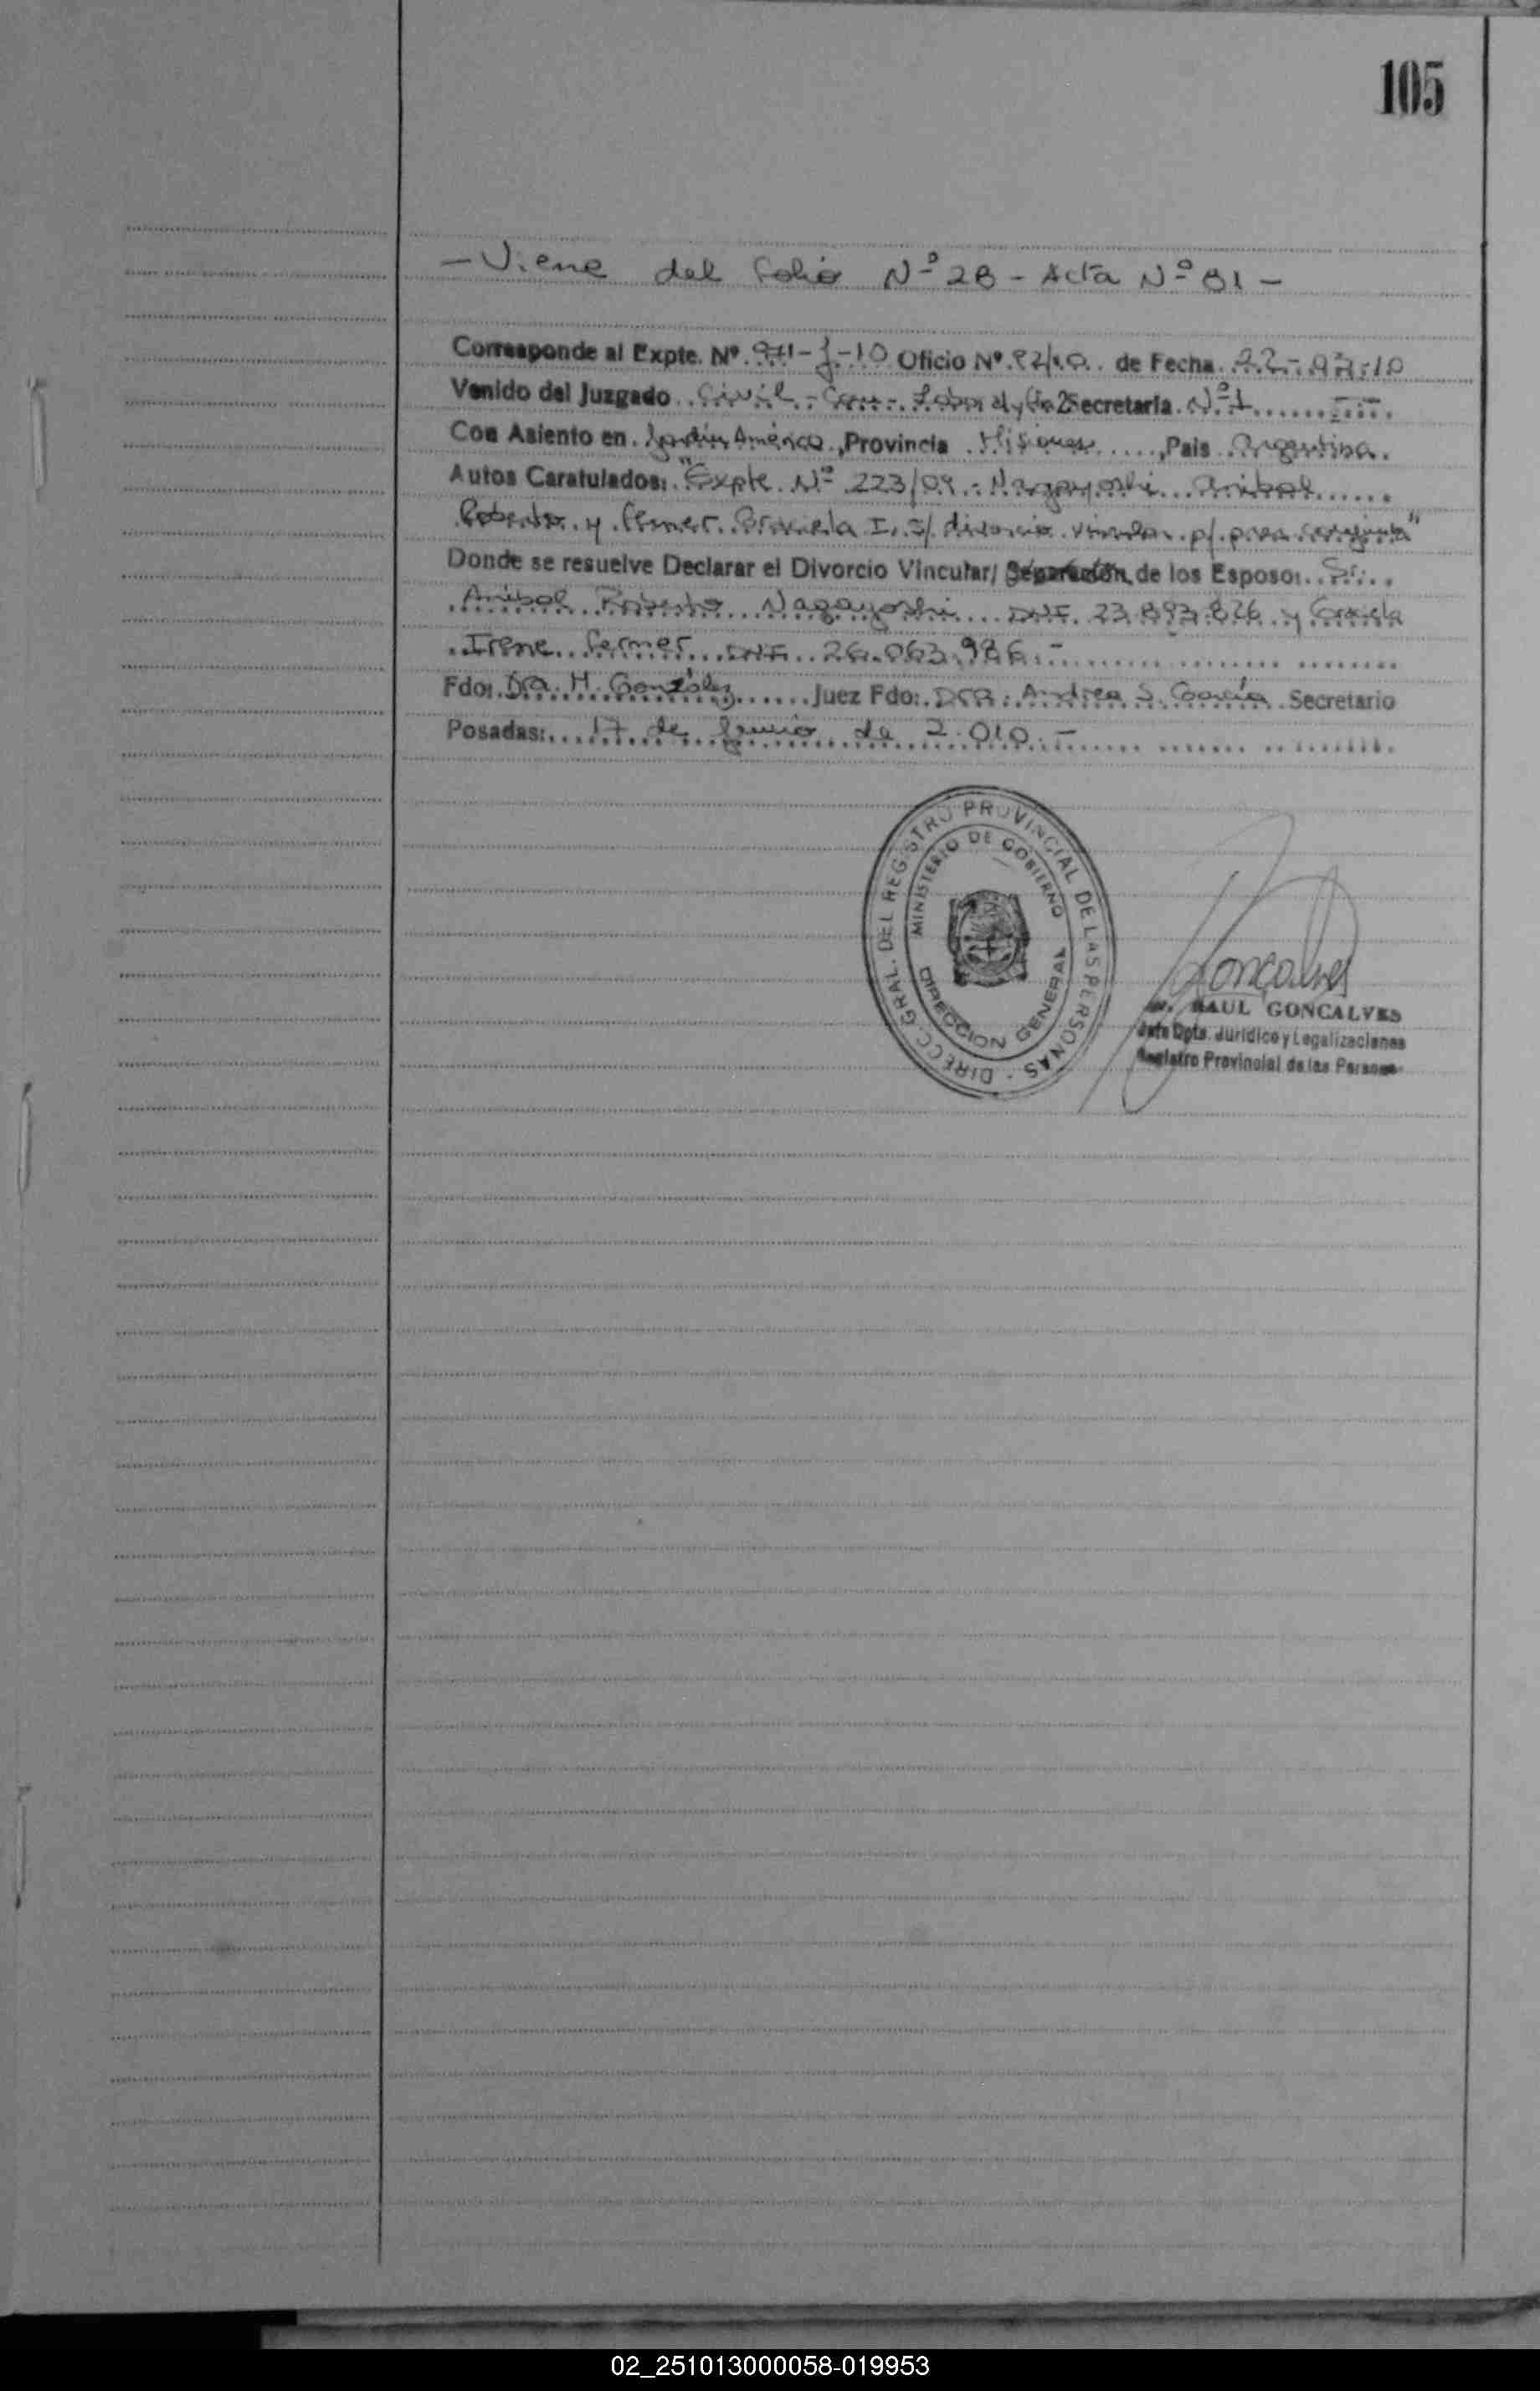 105
- Viene del folio Nº 28 - Acta Nº 81 -
Corresponde al Expte. Nº 911-J-10 Oficio Nº de Fecha 22-03-10
Venido del Juzgado Civil - Com - Laboral y Secretaria Nº 1
Con Asiento en Jardín América, Provincia Misiones, Pais Argentina.
Autos Caratulados: "Expte. Nº 223/09 - Nagayoshi Anibal
Roberto y Graciela I. S/ divorcio vincular p/ pres. conjunta"
Donde se resuelve Declarar el Divorcio Vincular/ Separación de los Esposo: Sr.
Anibal Roberto Nagayoshi DNI. 23.893.826 y Graciela
Irene DNI. 26.063.986.-
Fdo: Dra. H. González Juez Fdo: Dra. Andrea S. García Secretario
Posadas: 17 de Junio de 2.010.-
DIRECC. GRAL. DEL REGISTRO PROVINCIAL DE LAS PERSONAS
MINISTERIO DE GOBIERNO
DIRECCION GENERAL
Goncalves
RAUL GONCALVES
Jefe Dpto. Jurídico y Legalizaciones
Registro Provincial de las Personas
02_251013000058-019953